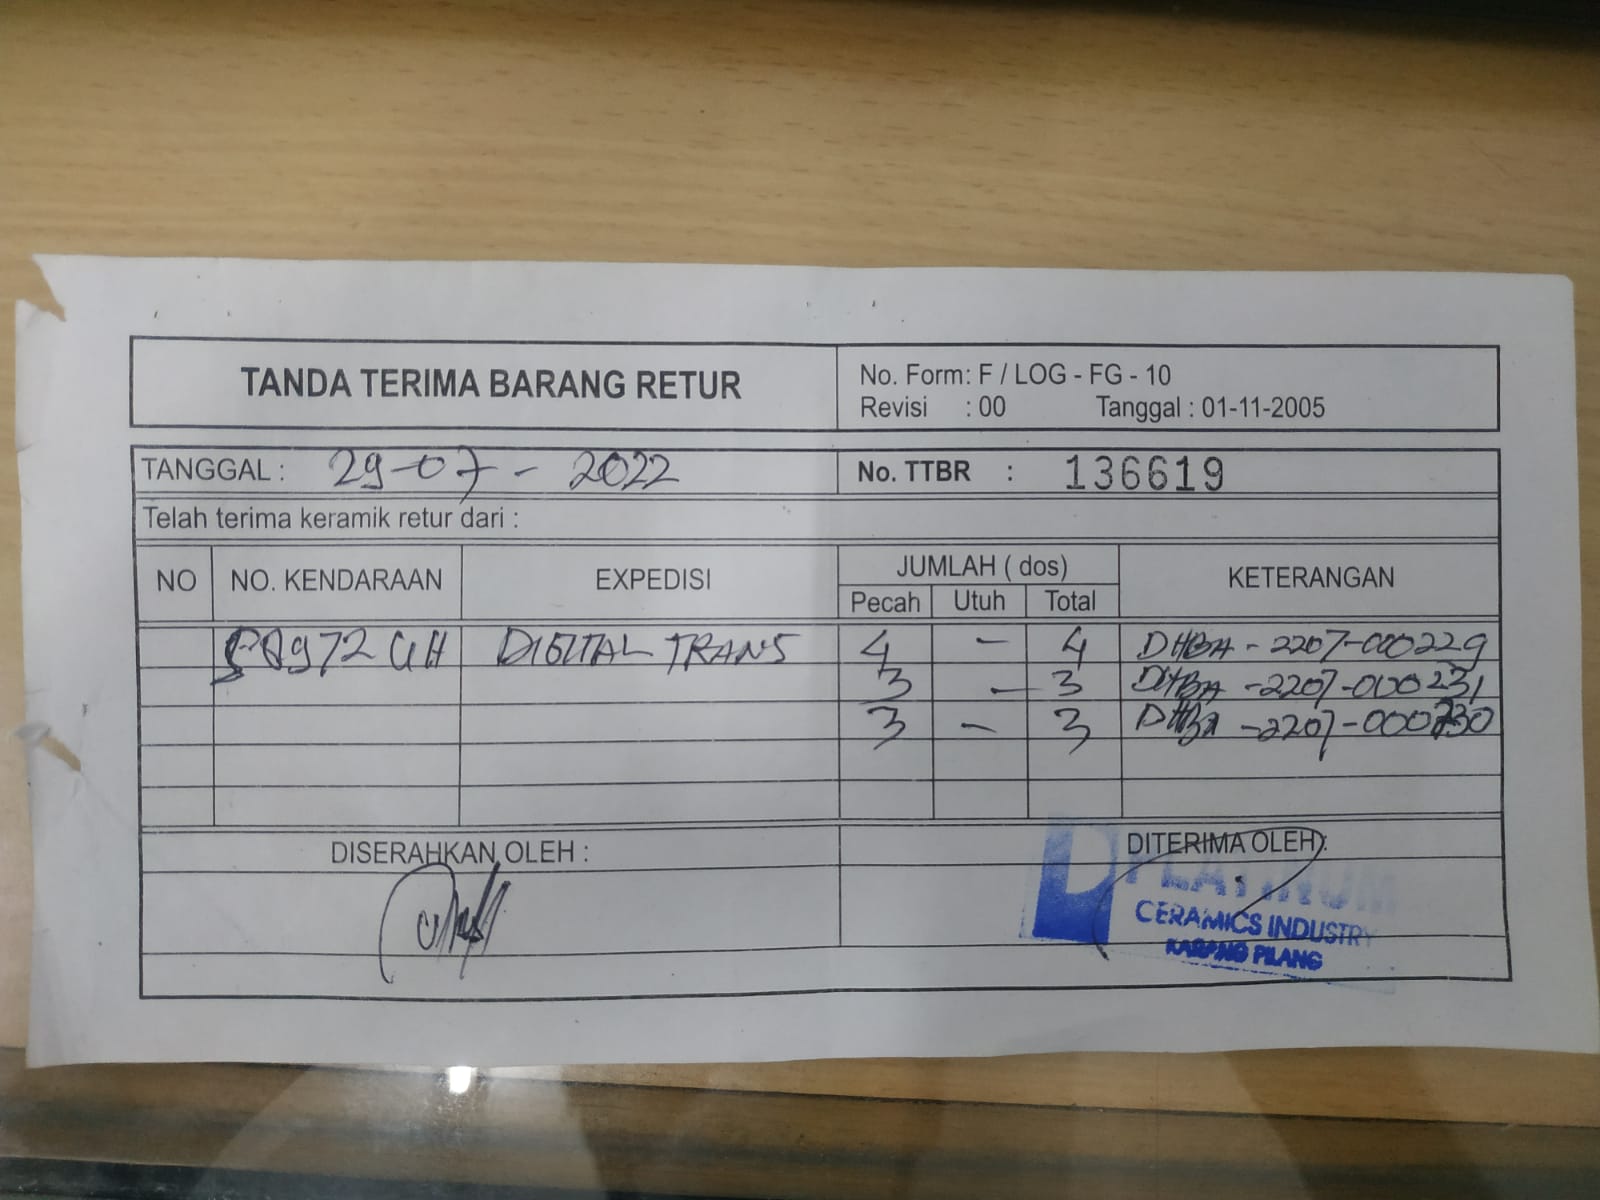 TANDA TERIMA BARANG RETUR
No. Form: F / LOG - FG - 10
Revisi : 00 Tanggal : 01-11-2005
TANGGAL : 29-07-2022
No. TTBR : 136619
Telah terima keramik retur dari :
NO NO. KENDARAAN EXPEDISI JUMLAH ( dos) KETERANGAN
Pecah Utuh Total
DIGITAL TRANS 4 - 4 DHBA - 2207-000229
3 - 3 DHBA -2207-000231
3 - 3 DHBA -2207-000230
DISERAHKAN OLEH :
DITERIMA OLEH :
PLATINUM
CERAMICS INDUSTRY
KARANG PILANG